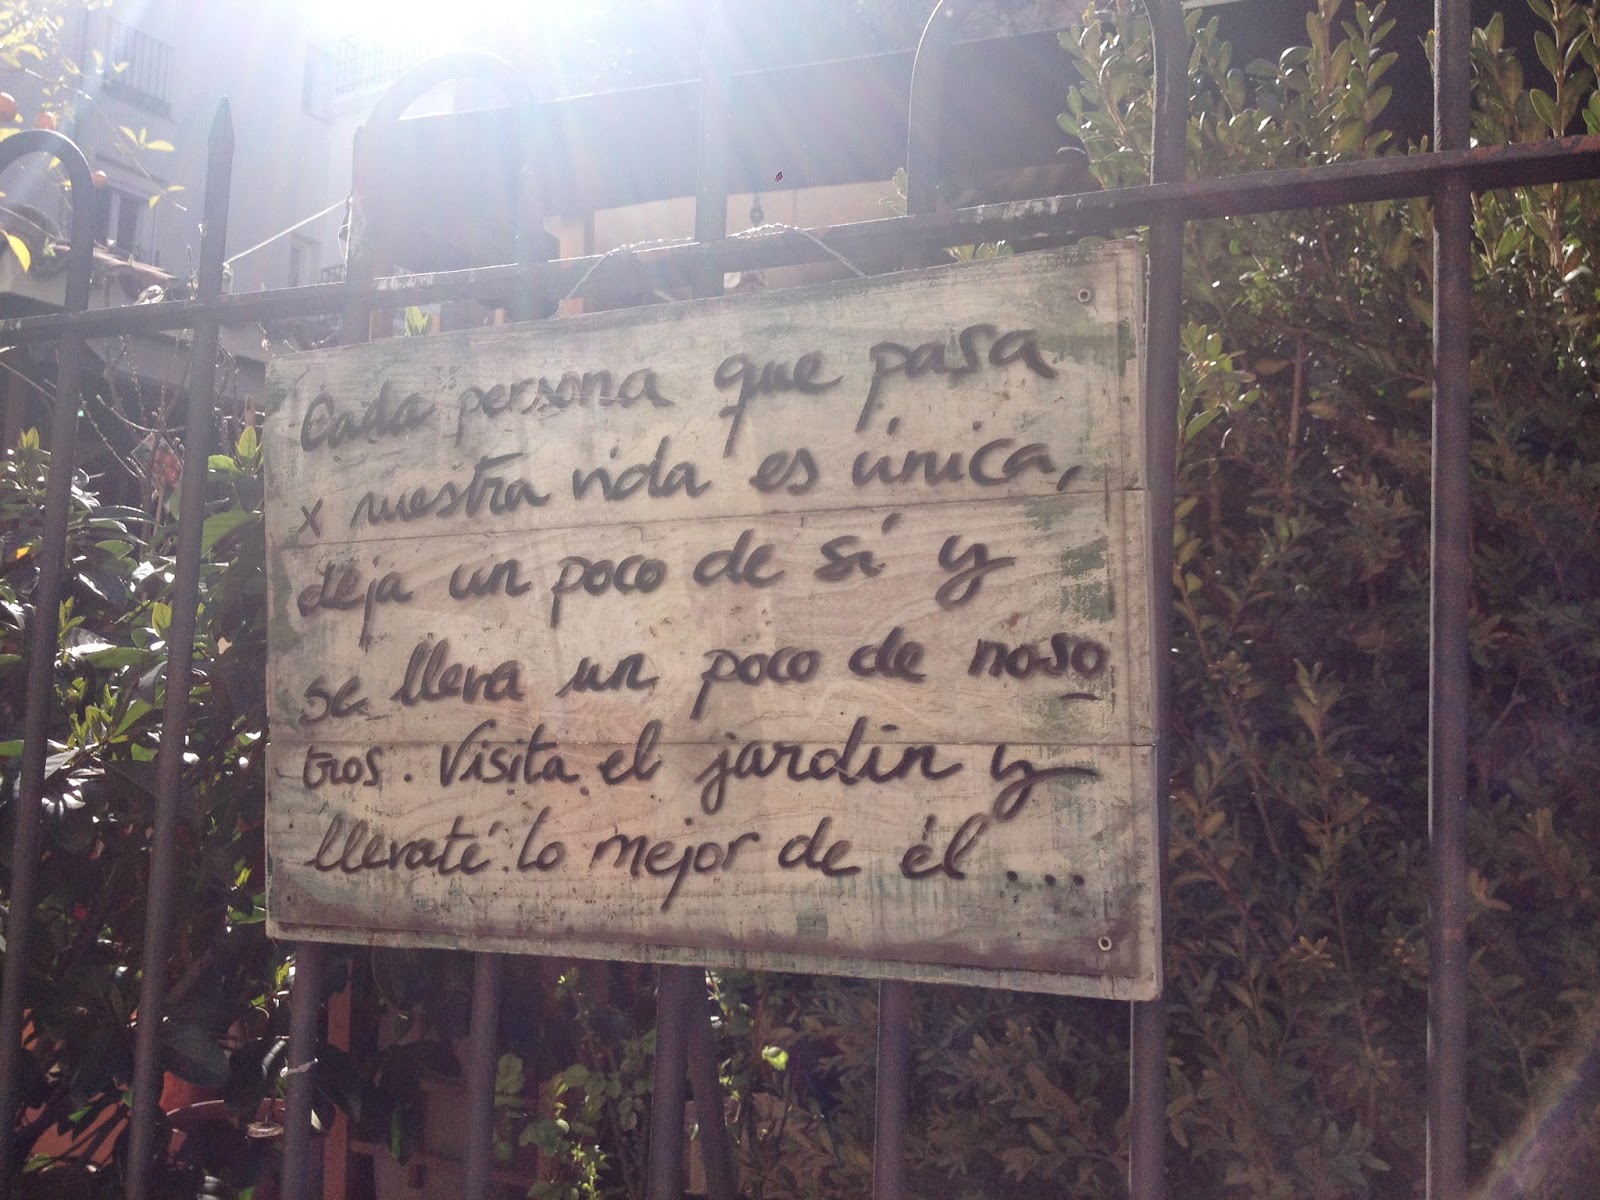 Cada persona que pasa
x nuestra vida es única,
deja un poco de sí y
se lleva un poco de noso
tros. Visita el jardin y
llevaté lo mejor de él...